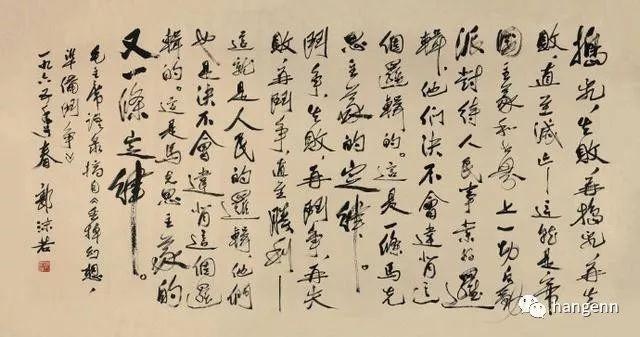 搗乱，失敗，再搗乱，再失
敗，直至滅亡——這就是帝
國主義和世界上一切反動
派對待人民事業的邏
輯，他們決不會違背這
個邏輯的。這是一條馬克
思主義的定律。
鬥争，失敗，再鬥争，再失
敗，再鬥争，直至勝利——
這就是人民的邏輯，他們
也是決不會違背這個邏
輯的。這是馬克思主義的
又一條定律。
毛主席語录摘自《丟掉幻想，
準備鬥争》
一九六五年春 郭沫若
hangenn